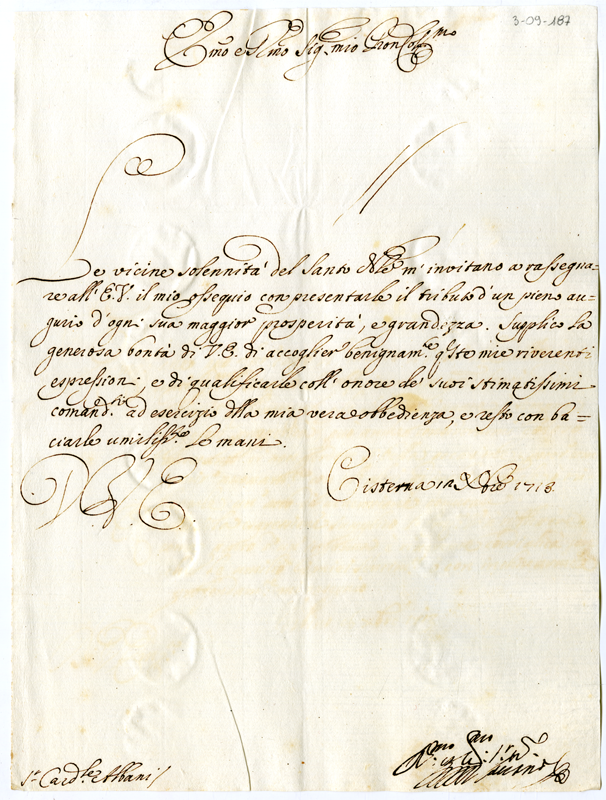 3-09-187
Em̃o e Rm̃o Sig.r mio Pron Col.mo
Le vicine solennità del Santo Nãle m'invitano a rassegna=
re all'E.V. il mio ossequio con presentarle il tributo d'un pieno au=
gurio d'ogni sua maggior prosperità, e grandezza. Supplico la
generosa bontà di V.E. di accoglier benignam.te q̃ste mie riverenti
espressioni, e di qualificarle coll'onore de' suoi stimatissimi
comand.ti ad esercizio d̃lla mia vera obbedienza, e resto con ba=
ciarle umiliss.te le mani.
D. V. E.
Cisterna 12 Xbr̃e 1718
S.r Card.le Albani